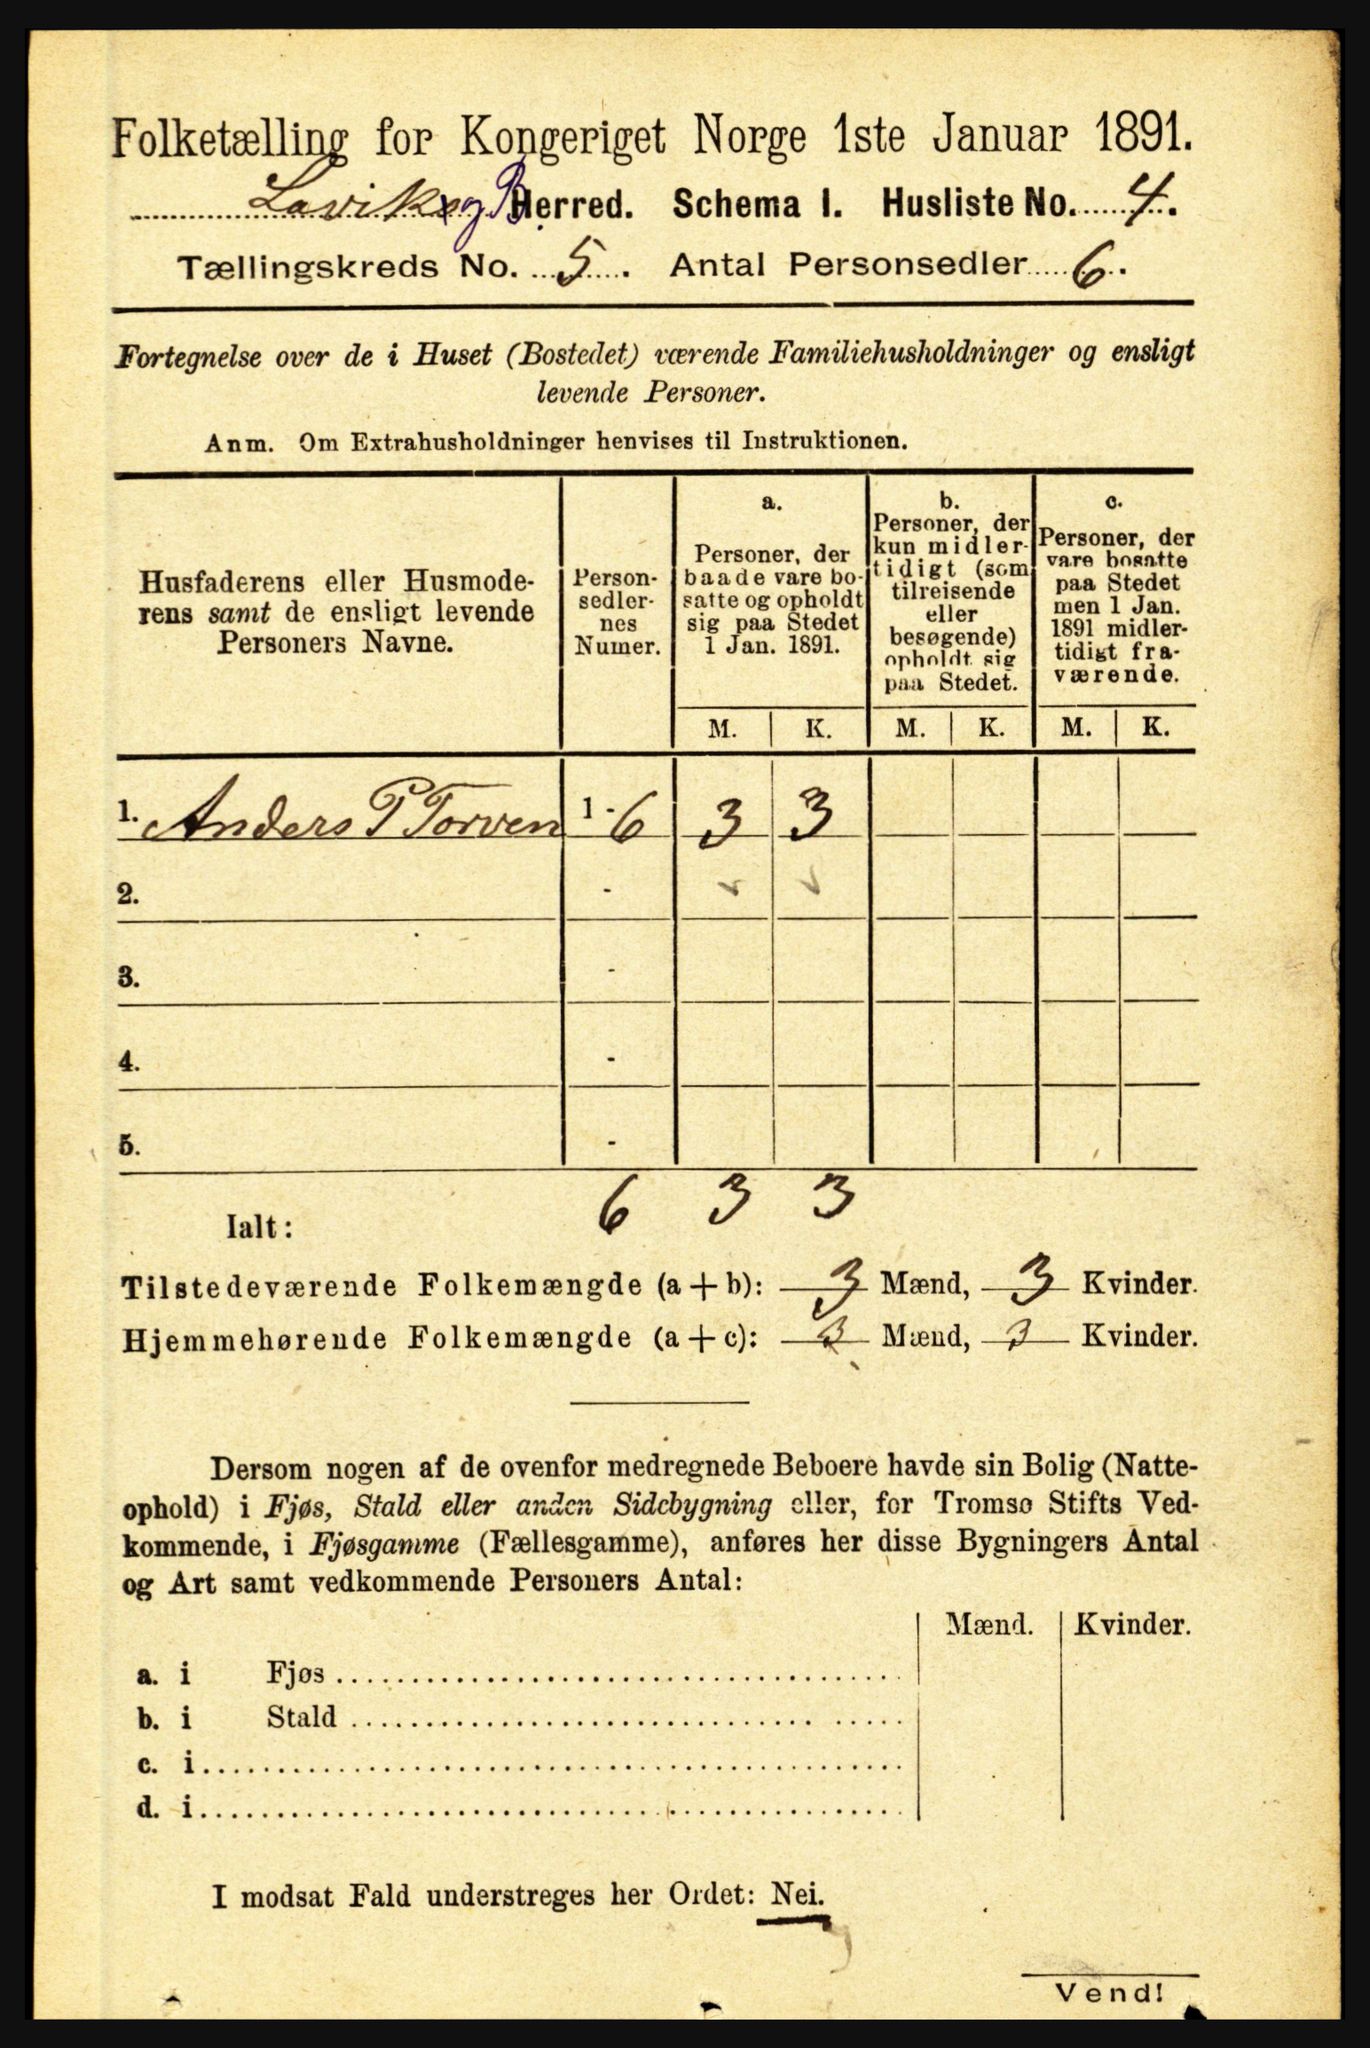 Folketælling for Kongeriget Norge 1ste Januar 1891.
Lavik og B Herred. Schema I. Husliste No. 4.
Tællingskreds No. 5. Antal Personsedler 6.
Fortegnelse over de i Huset (Bostedet) værende Familiehusholdninger og ensligt
levende Personer.
Anm. Om Extrahusholdninger henvises til Instruktionen.
Husfaderens eller Husmode-
rens samt de ensligt levende
Personers Navne.
Person-
sedler-
nes
Numer.
a.
Personer, der
baade vare bo-
satte og opholdt
sig paa Stedet
1 Jan. 1891.
b.
Personer, der
kun midler-
tidigt (som
tilreisende
eller
besøgende)
opholdt sig
paa Stedet.
c.
Personer, der
vare bosatte
paa Stedet
men 1 Jan.
1891 midler-
tidigt fra-
værende.
M. K. M. K. M. K.
1. Anders P Torven 1 - 6 3 3
2. -
3. -
4. -
5. -
Ialt: 6 3 3
Tilstedeværende Folkemængde (a + b): 3 Mænd, 3 Kvinder.
Hjemmehørende Folkemængde (a + c): 3 Mænd, 3 Kvinder.
Dersom nogen af de ovenfor medregnede Beboere havde sin Bolig (Natte-
ophold) i Fjøs, Stald eller anden Sidebygning eller, for Tromsø Stifts Ved-
kommende, i Fjøsgamme (Fællesgamme), anføres her disse Bygningers Antal
og Art samt vedkommende Personers Antal:
Mænd. Kvinder.
a. i Fjøs
b. i Stald
c. i
d. i
I modsat Fald understreges her Ordet: Nei.
Vend!